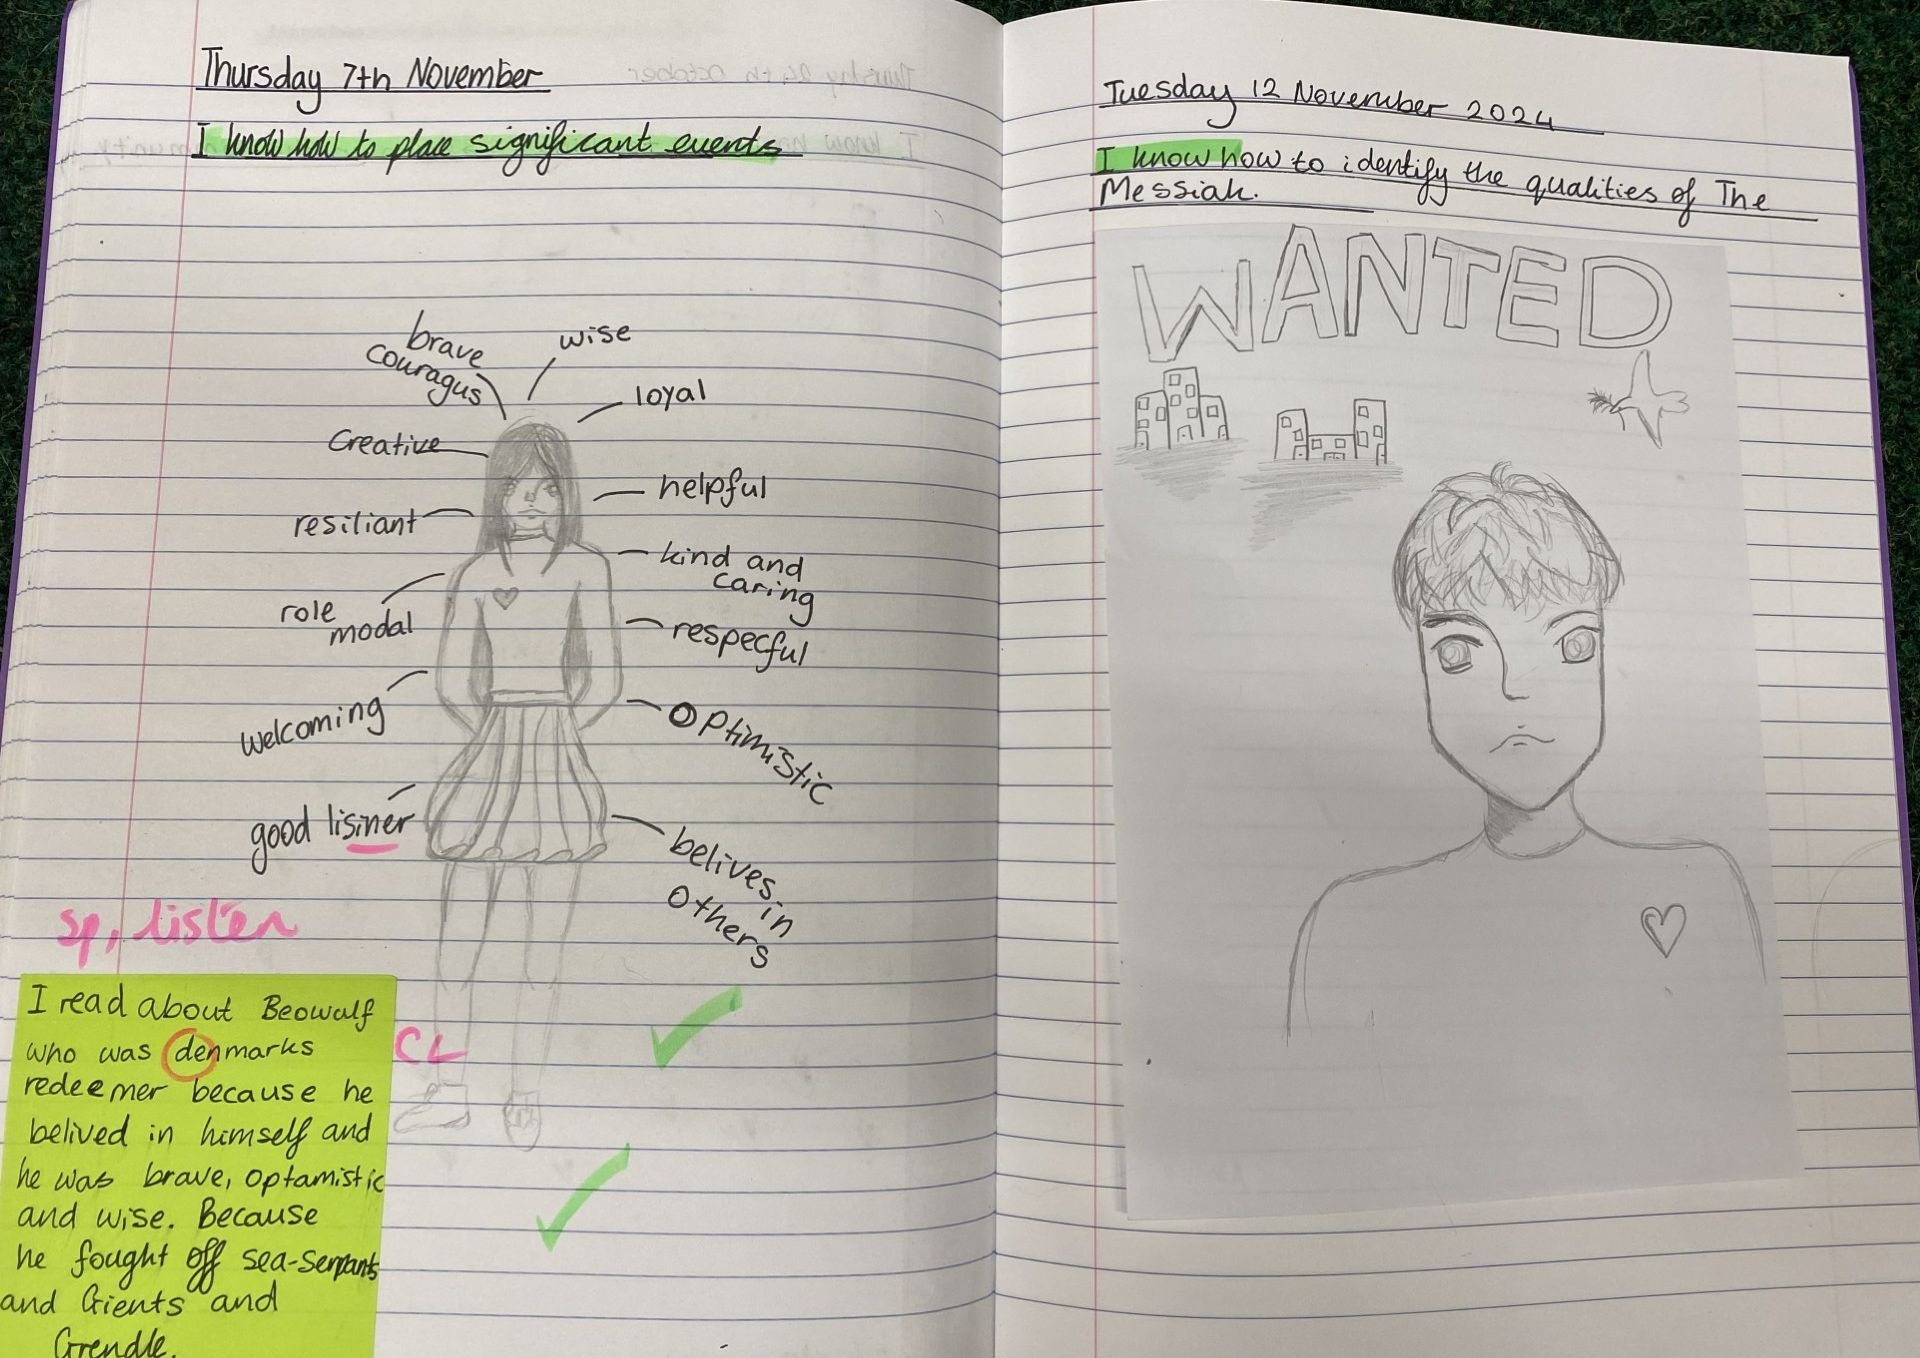 Thursday 7th November
I know how to place significant events
brave
couragus
wise
loyal
Creative
helpful
resiliant
kind and
caring
role
modal
respecful
welcoming
optimistic
good lisiner
belives in
others
sp, listen
I read about Beowulf
who was denmarks
redeemer because he
belived in himself and
he was brave, optamistic
and wise. Because
he fought off sea-serpants
and Gients and
Grendle.
CL
Tuesday 12 November 2024
I know how to identify the qualities of The
Messiah.
WANTED